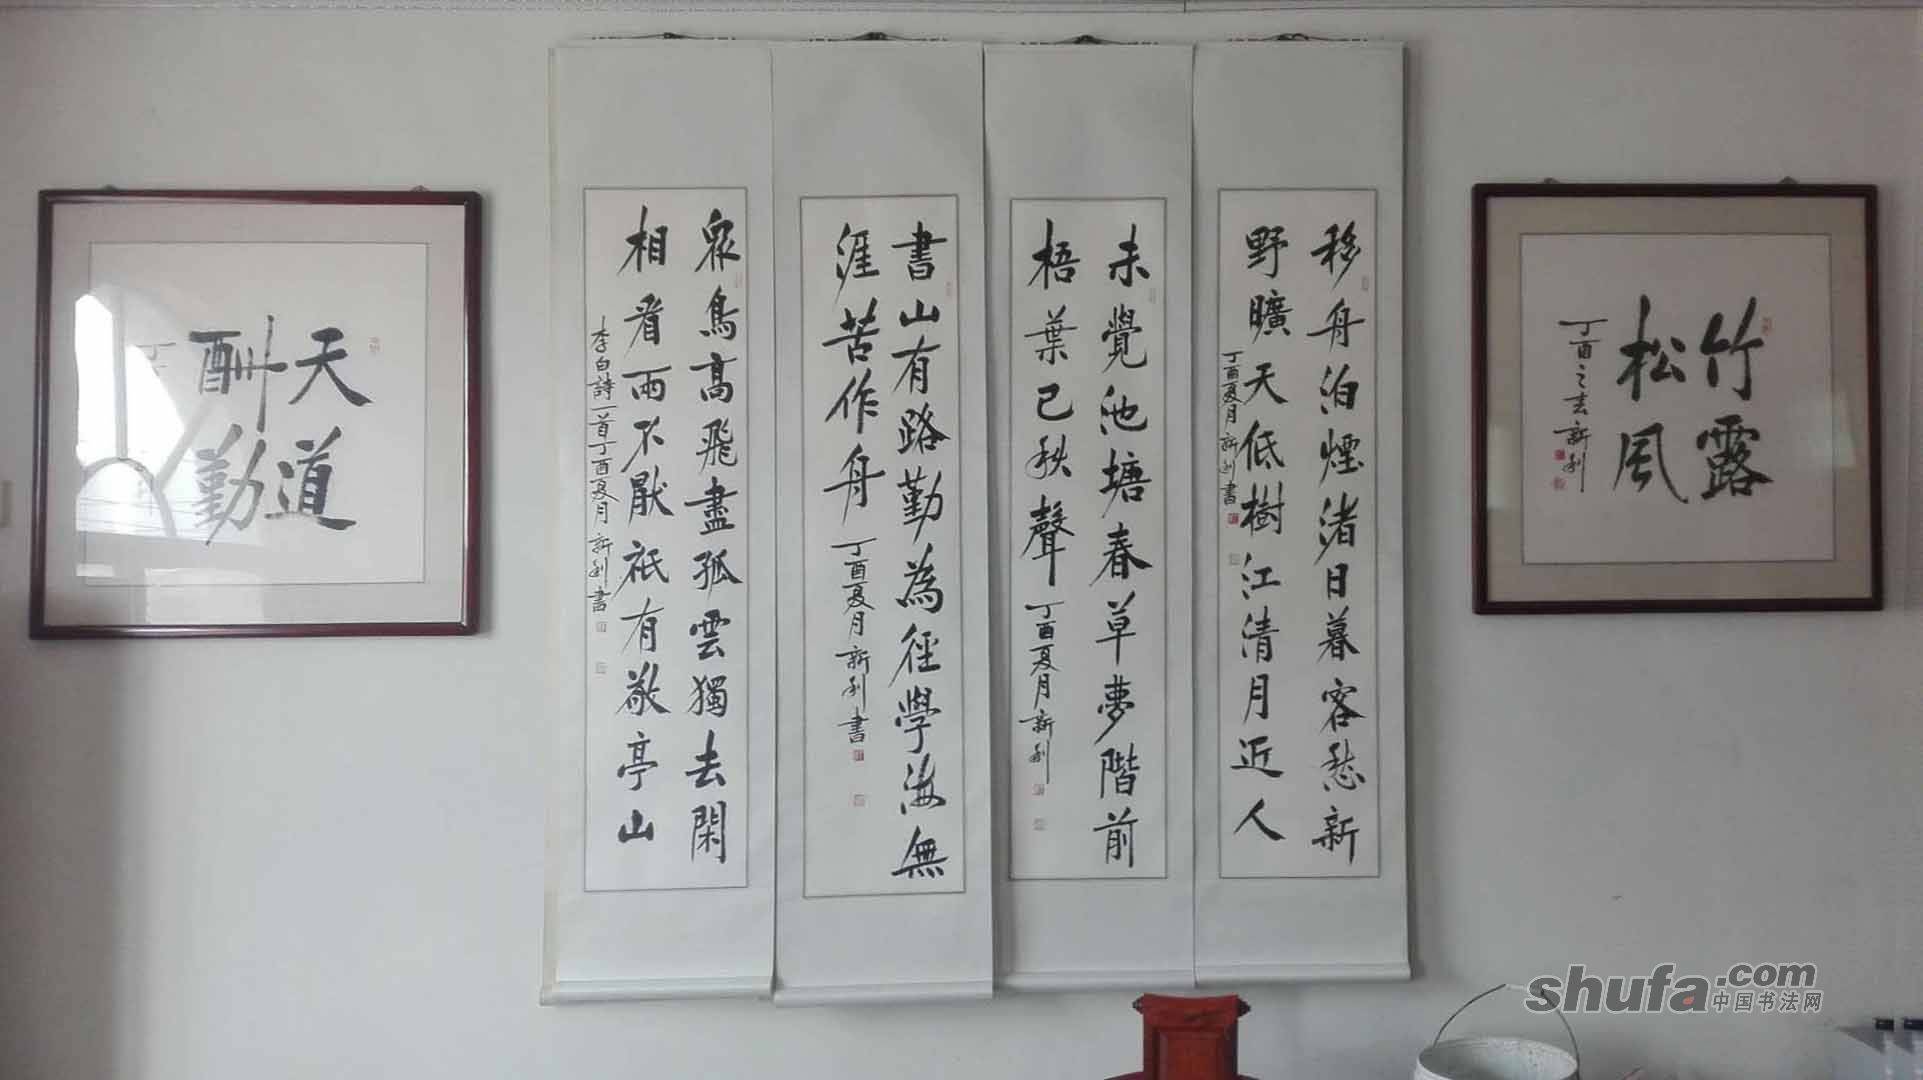 竹露
松風
丁酉之 新利
移舟泊煙渚日暮客愁新
野曠天低樹江清月近人
丁酉夏月新利書
未覺池塘春草夢階前
梧葉已秋聲
丁酉夏月新利
書山有路勤為徑學海無
涯苦作舟
丁酉夏月新利書
眾鳥高飛盡孤雲獨去閑
相看兩不厭祇有敬亭山
李白詩一首丁酉夏月新利書
天道
酬勤
丁
shufa.com
中国书法网